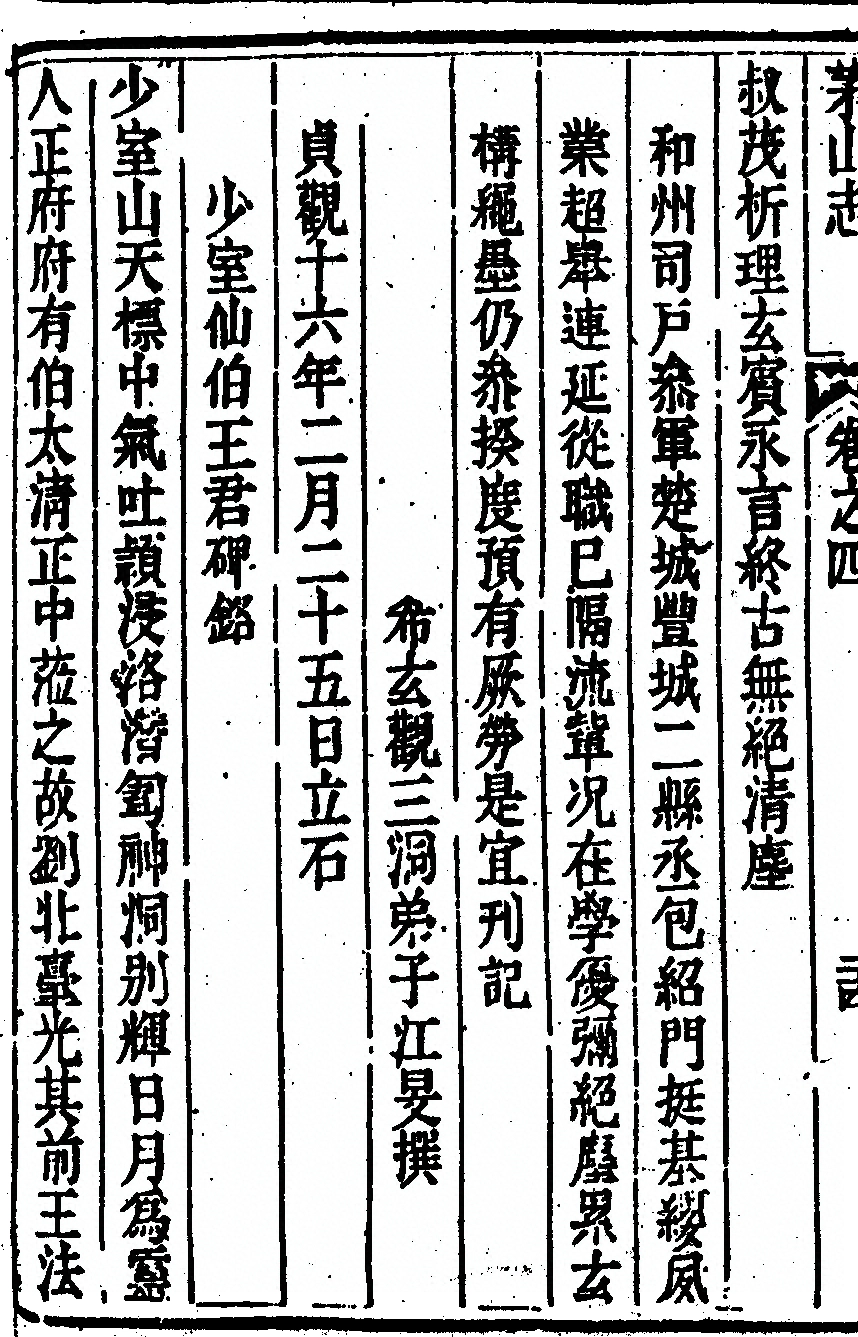 茅山志 卷之四
叔茂析理玄賓永言終古無絕清塵
和州司戶叅軍楚城豐城二縣丞包紹門挺基纓風
業超舉連延從職巳隔流輩况在學優彌絕塵累玄
構繩墨仍叅揆度預有厥勞是宜刊記
希玄觀三洞弟子江旻撰
貞觀十六年二月二十五日立石
少室仙伯王君碑銘
少室山天標中氣吐頴浸洛潛匌神洞别輝日月爲靈
人正府府有伯太清正中蒞之故劉北臺光其前王法